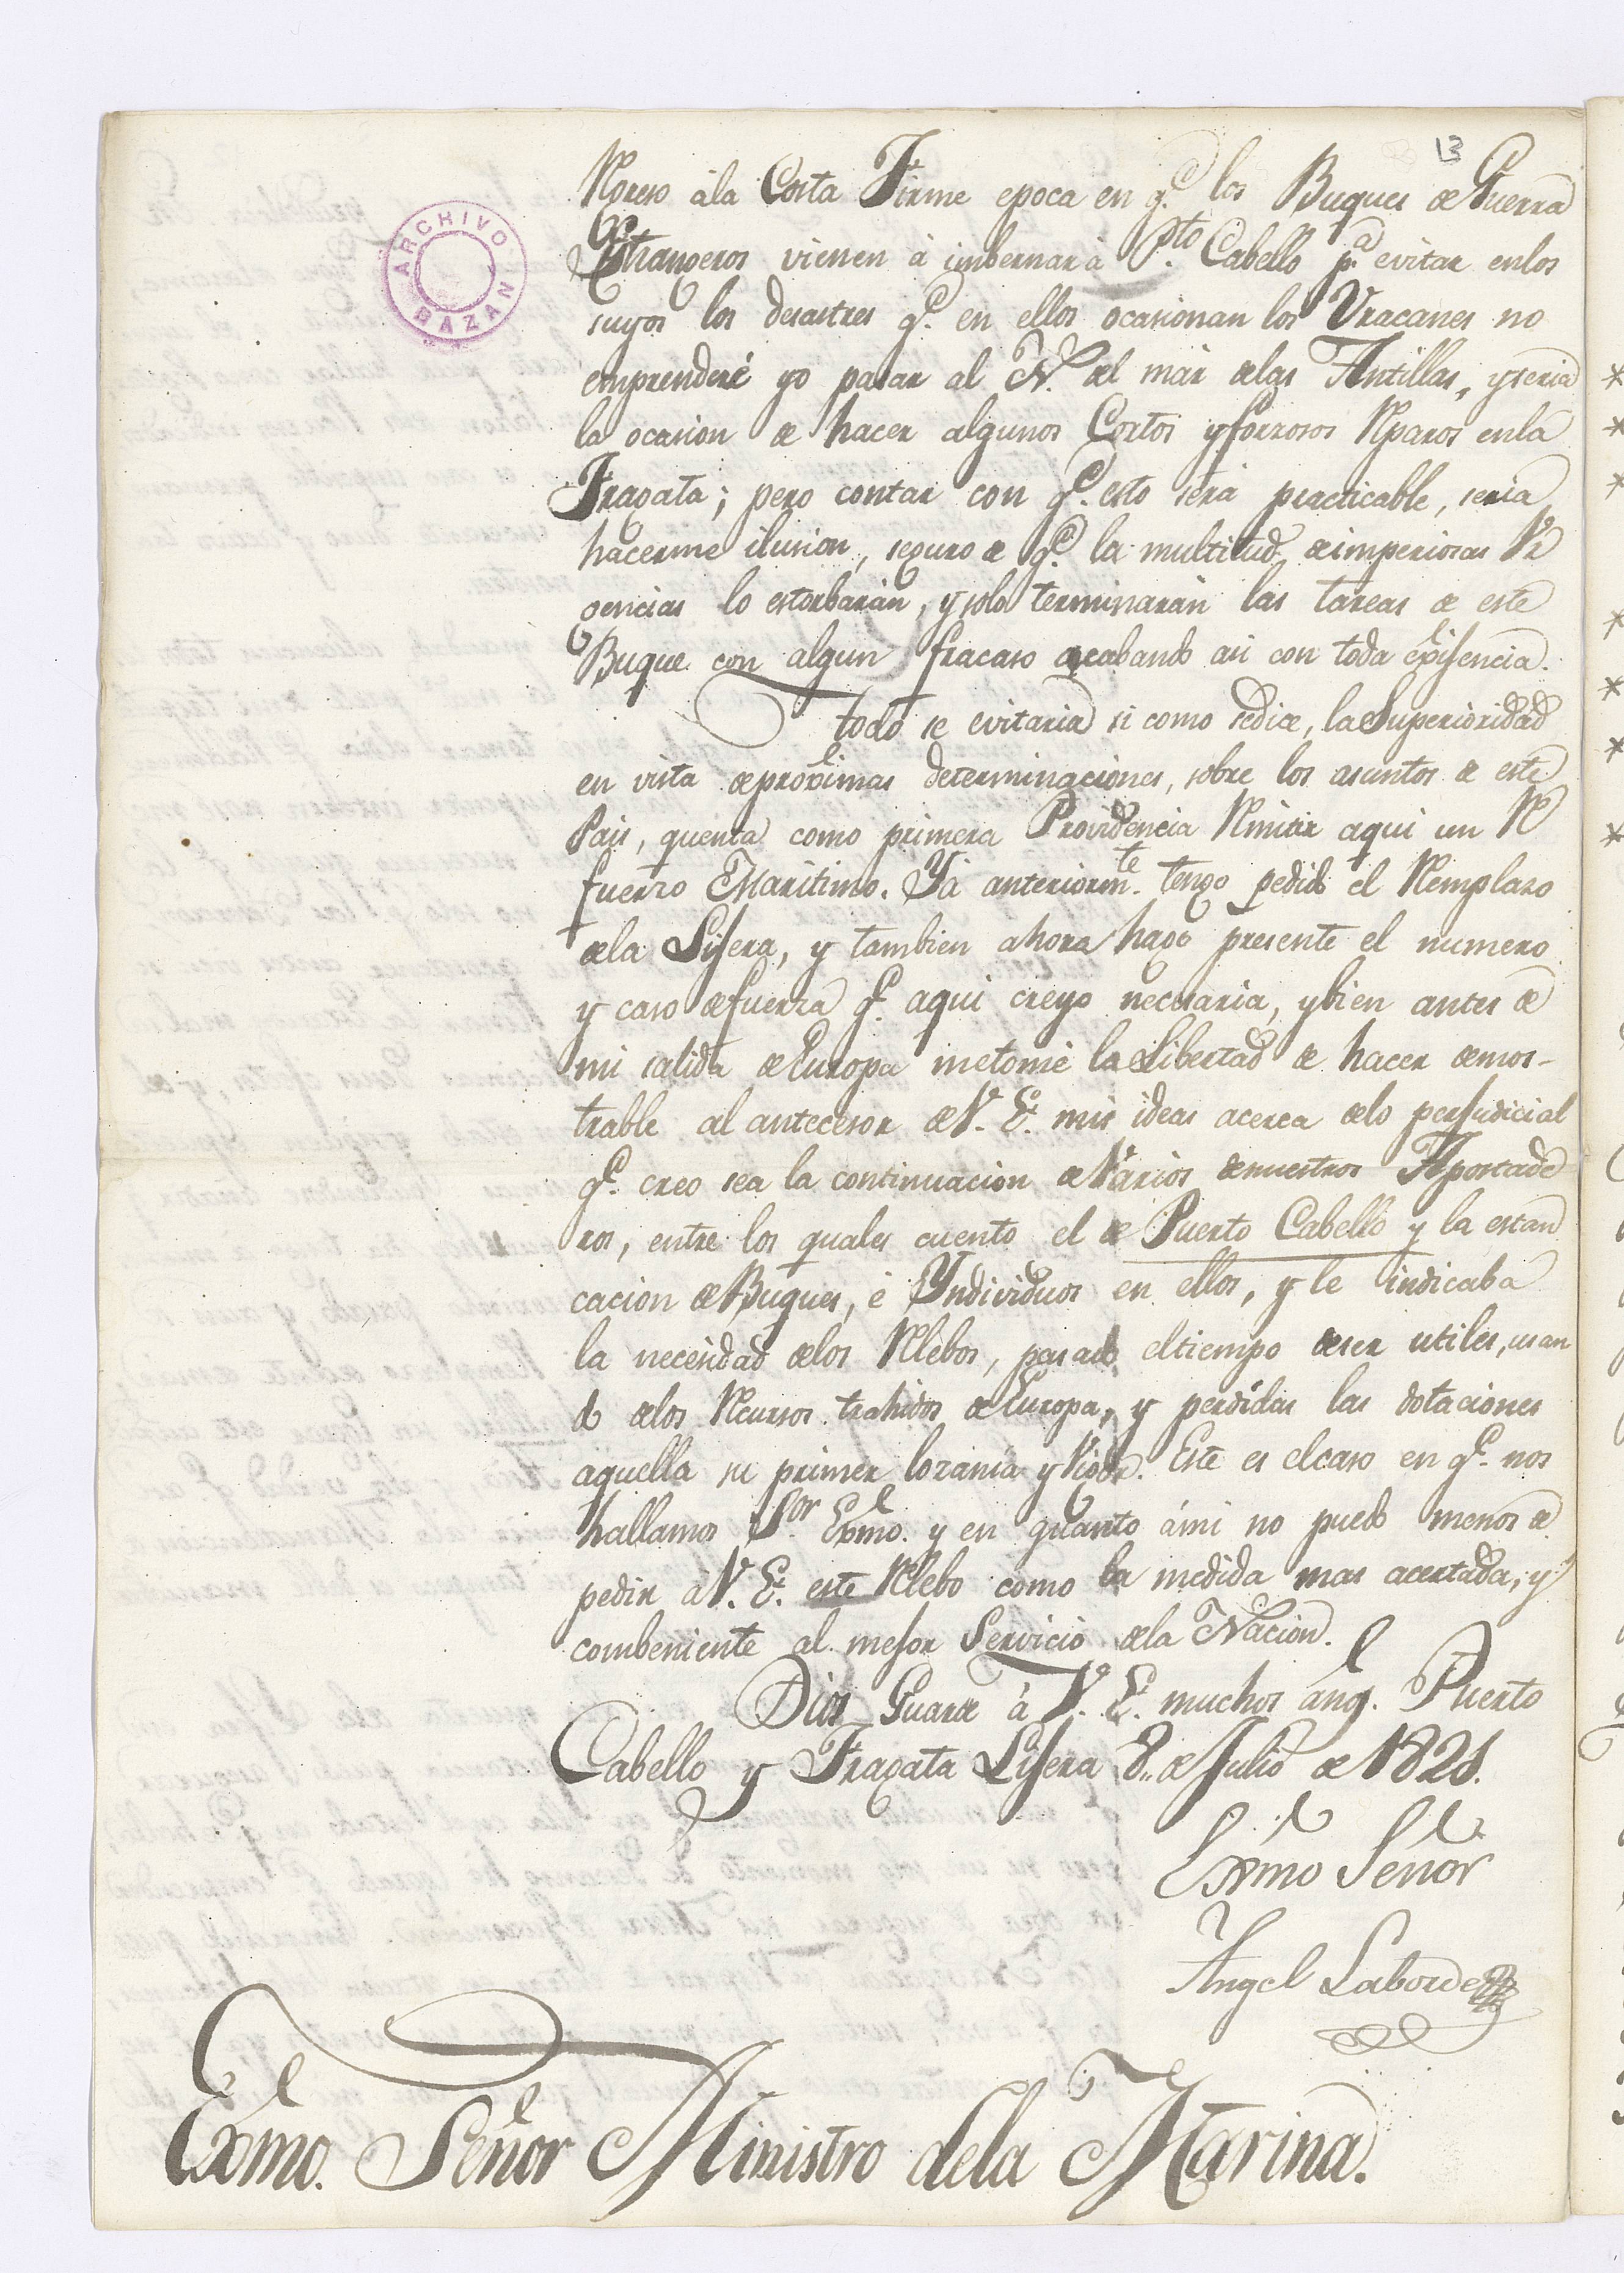 13
ARCHIVO BAZAN
Rgreso àla Costa Firme epoca en q.e los Buques de Guerra
Estrangeros vienen à imbernar à Pto. Cabello p.a evitar enlos
suyos los desastres q.e en ellos ocasionan los Vracanes no
emprenderé yo pasar al N. del mar delas Antillas, y seria
la ocasion de hacer algunos Cortos y forzosos Rparos enla
Fragata; pero contar con q.e esto será practicable, seria
hacerme ilusion, seguro de q.e la multitud de imperiosas Vr
gencias lo estorbarán, y solo terminarán las tareas de este
Buque con algun fracaso acabando asi con toda existencia.
Todo se evitaria si como sedice, la Superioridad
en vista de proximas determinaciones, sobre los asuntos de este
Pais, quenta como primera Providencia Rmitir aqui un R
fuerzo Maritimo. Yá anteriorm.te tengo pedido el Remplazo
dela Ligera, y tambien ahora hago presente el numero
y caso de fuerza q.e aqui creyo necesaria, y bien antes de
mi salida de Europa metomé la Libertad de hacer demos-
trable al antecesor de V. E. mis ideas acerca delo perjudicial
q.e creo sea la continuacion de Varios denuestros Apostade
ros, entre los quales cuento el de Puerto Cabello y la estan
cacion de Buques, é Yndividuos en ellos, y le indicaba
la necesidad delos Rlebos, pasado eltiempo deser utiles, usan
do delos Rcursos trahidos de Europa, y perdidas las dotaciones
aquella su primer lozania y Vigor. Este es elcaso en q.e nos
hallamos S.or Exmo. y en quanto ámi no puedo menos de
pedir à V. E. este Rlebo como la medida mas acertada, y
combeniente al mejor Servicio dela Nacion.
Dios Guarde à V. E. muchos añ.s Puerto
Cabello y Fragata Ligera 8,, de Julio de 1821.
Exmo Señor
Angel Laborde
Exmo. Señor Ministro dela Marina.